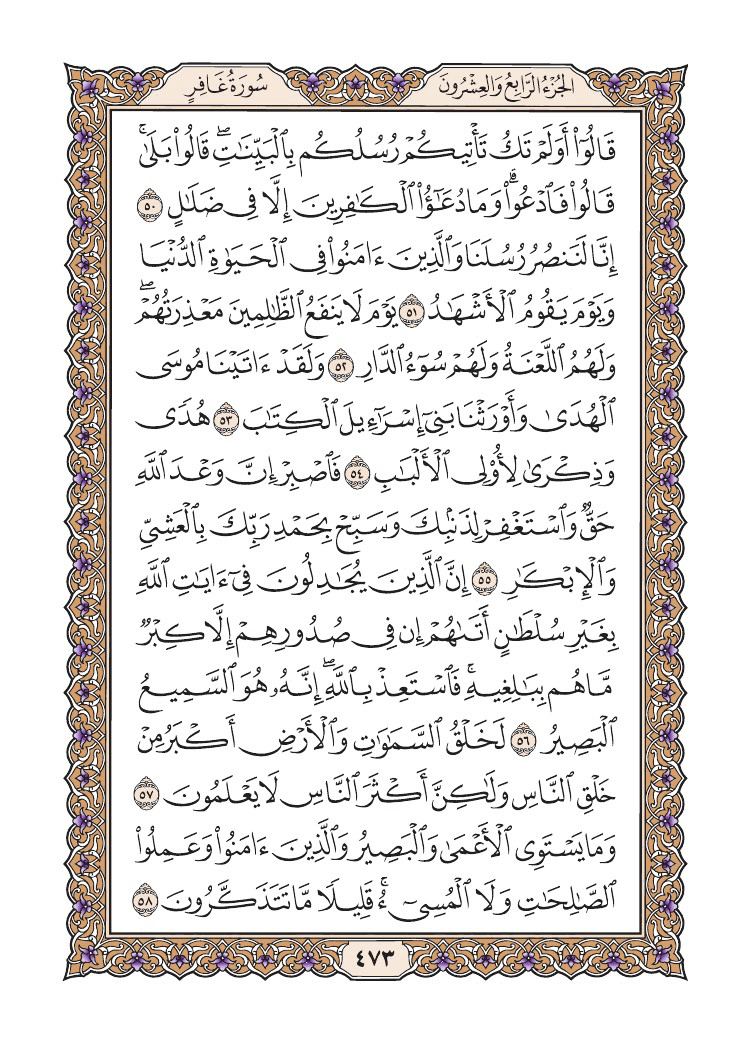 الجُزْءُ الرَّابِعُ وَالعِشْرُونَ
سُورَةُ غَافِرٍ
قَالُوٓا۟ أَوَلَمْ تَكُ تَأْتِيكُمْ رُسُلُكُم بِٱلْبَيِّنَٰتِ ۖ قَالُوا۟ بَلَىٰ ۚ
قَالُوا۟ فَٱدْعُوا۟ ۗ وَمَا دُعَٰٓؤُا۟ ٱلْكَٰفِرِينَ إِلَّا فِى ضَلَٰلٍ ٥٠
إِنَّا لَنَنصُرُ رُسُلَنَا وَٱلَّذِينَ ءَامَنُوا۟ فِى ٱلْحَيَوٰةِ ٱلدُّنْيَا
وَيَوْمَ يَقُومُ ٱلْأَشْهَٰدُ ٥١ يَوْمَ لَا يَنفَعُ ٱلظَّٰلِمِينَ مَعْذِرَتُهُمْ ۖ
وَلَهُمُ ٱللَّعْنَةُ وَلَهُمْ سُوٓءُ ٱلدَّارِ ٥٢ وَلَقَدْ ءَاتَيْنَا مُوسَى
ٱلْهُدَىٰ وَأَوْرَثْنَا بَنِىٓ إِسْرَٰٓءِيلَ ٱلْكِتَٰبَ ٥٣ هُدًى
وَذِكْرَىٰ لِأُو۟لِى ٱلْأَلْبَٰبِ ٥٤ فَٱصْبِرْ إِنَّ وَعْدَ ٱللَّهِ
حَقٌّ وَٱسْتَغْفِرْ لِذَنۢبِكَ وَسَبِّحْ بِحَمْدِ رَبِّكَ بِٱلْعَشِىِّ
وَٱلْإِبْكَٰرِ ٥٥ إِنَّ ٱلَّذِينَ يُجَٰدِلُونَ فِىٓ ءَايَٰتِ ٱللَّهِ
بِغَيْرِ سُلْطَٰنٍ أَتَىٰهُمْ إِن فِى صُدُورِهِمْ إِلَّا كِبْرٌ
مَّا هُم بِبَٰلِغِيهِ ۚ فَٱسْتَعِذْ بِٱللَّهِ ۖ إِنَّهُۥ هُوَ ٱلسَّمِيعُ
ٱلْبَصِيرُ ٥٦ لَخَلْقُ ٱلسَّمَٰوَٰتِ وَٱلْأَرْضِ أَكْبَرُ مِنْ
خَلْقِ ٱلنَّاسِ وَلَٰكِنَّ أَكْثَرَ ٱلنَّاسِ لَا يَعْلَمُونَ ٥٧
وَمَا يَسْتَوِى ٱلْأَعْمَىٰ وَٱلْبَصِيرُ وَٱلَّذِينَ ءَامَنُوا۟ وَعَمِلُوا۟
ٱلصَّٰلِحَٰتِ وَلَا ٱلْمُسِىٓءُ ۚ قَلِيلًا مَّا تَتَذَكَّرُونَ ٥٨
٤٧٣